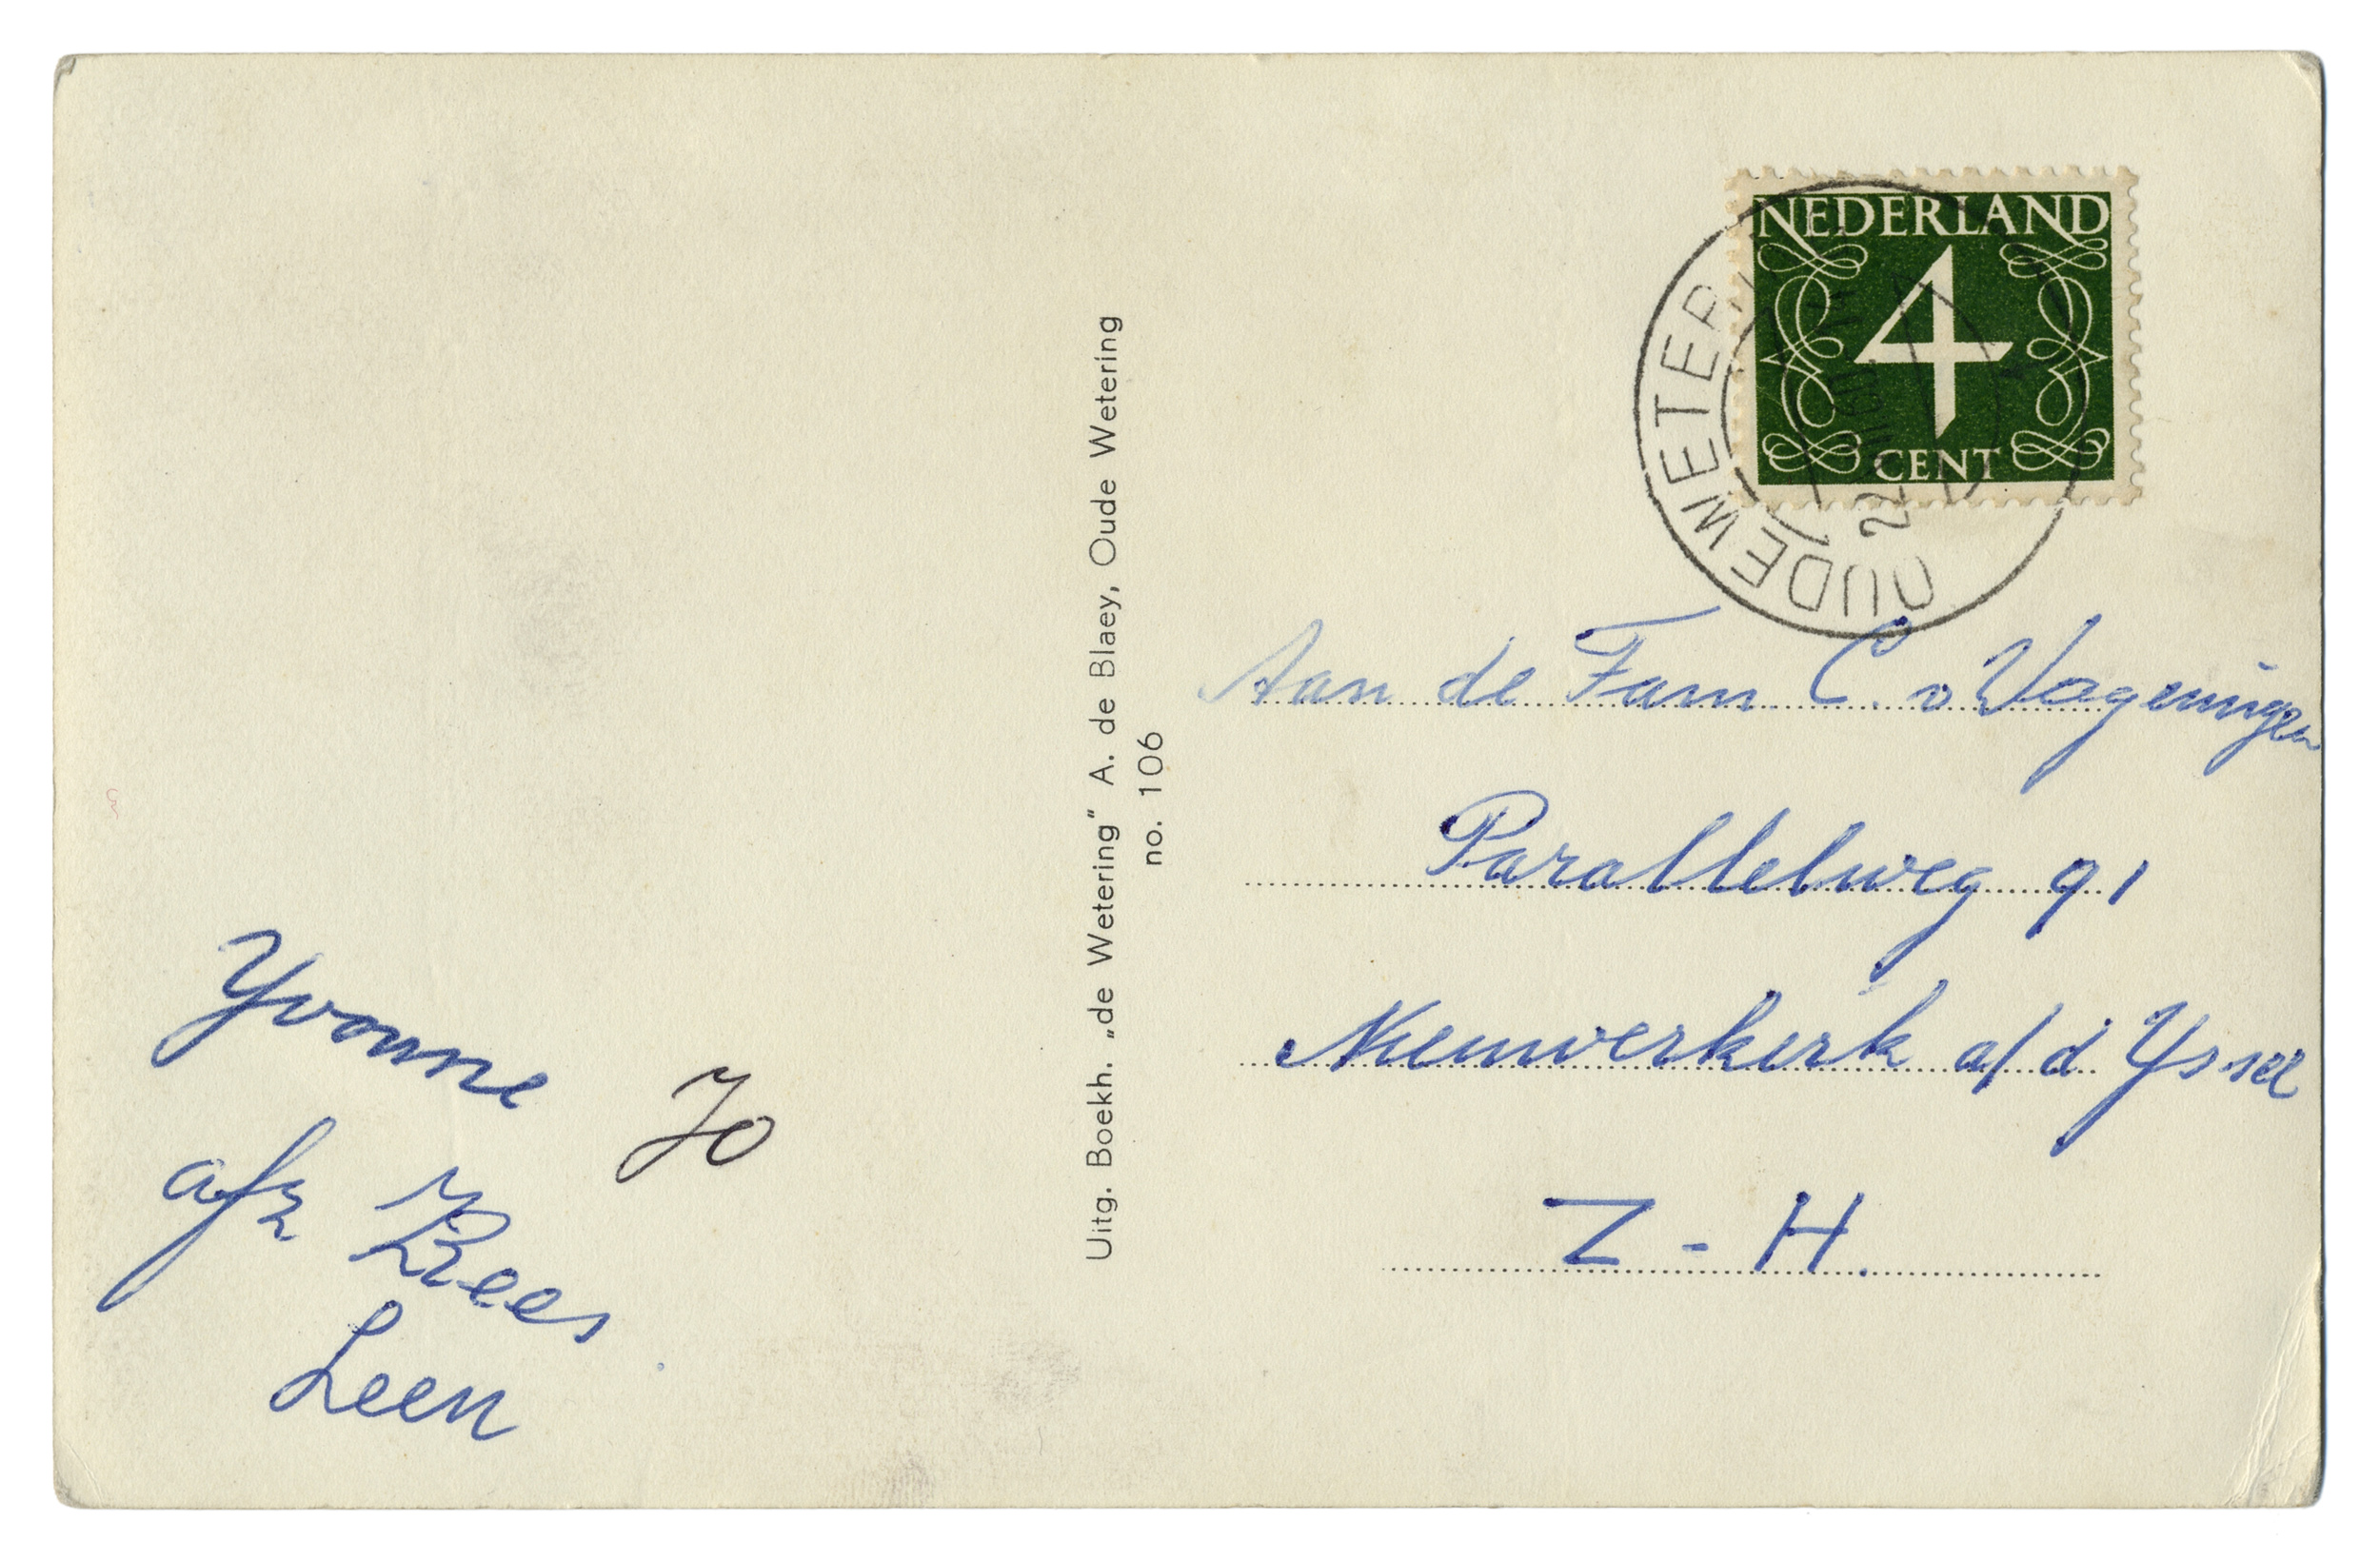 NEDERLAND
4
CENT
OUDEWETER
22
Aan de Fam C. v Wageningen
Parallelweg 91
Nieuwerkerk a/d Yssel
Z - H.
Uitg. Boekh. „de Wetering” A. de Blaey, Oude Wetering
no. 106
Yvonne
Jo
afz Kees
Leen